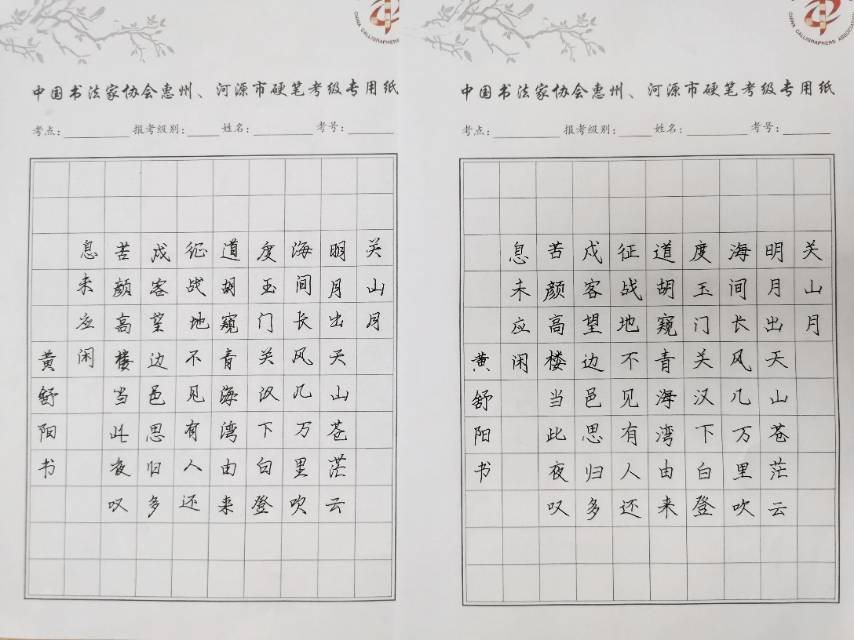 中国书法家协会惠州、河源市硬笔考级专用纸
考点： 报考级别： 姓名： 考号：
关山月
明月出天山苍茫云
海间长风几万里吹
度玉门关汉下白登
道胡窥青海湾由来
征战地不见有人还
戍客望边邑思归多
苦颜高楼当此夜叹
息未应闲
黄舒阳书
CHINA CALLIGRAPHERS ASSOCIATION
中国书法家协会惠州、河源市硬笔考级专用纸
考点： 报考级别： 姓名： 考号：
关山月
明月出天山苍茫云
海间长风几万里吹
度玉门关汉下白登
道胡窥青海湾由来
征战地不见有人还
戍客望边邑思归多
苦颜高楼当此夜叹
息未应闲
黄舒阳书